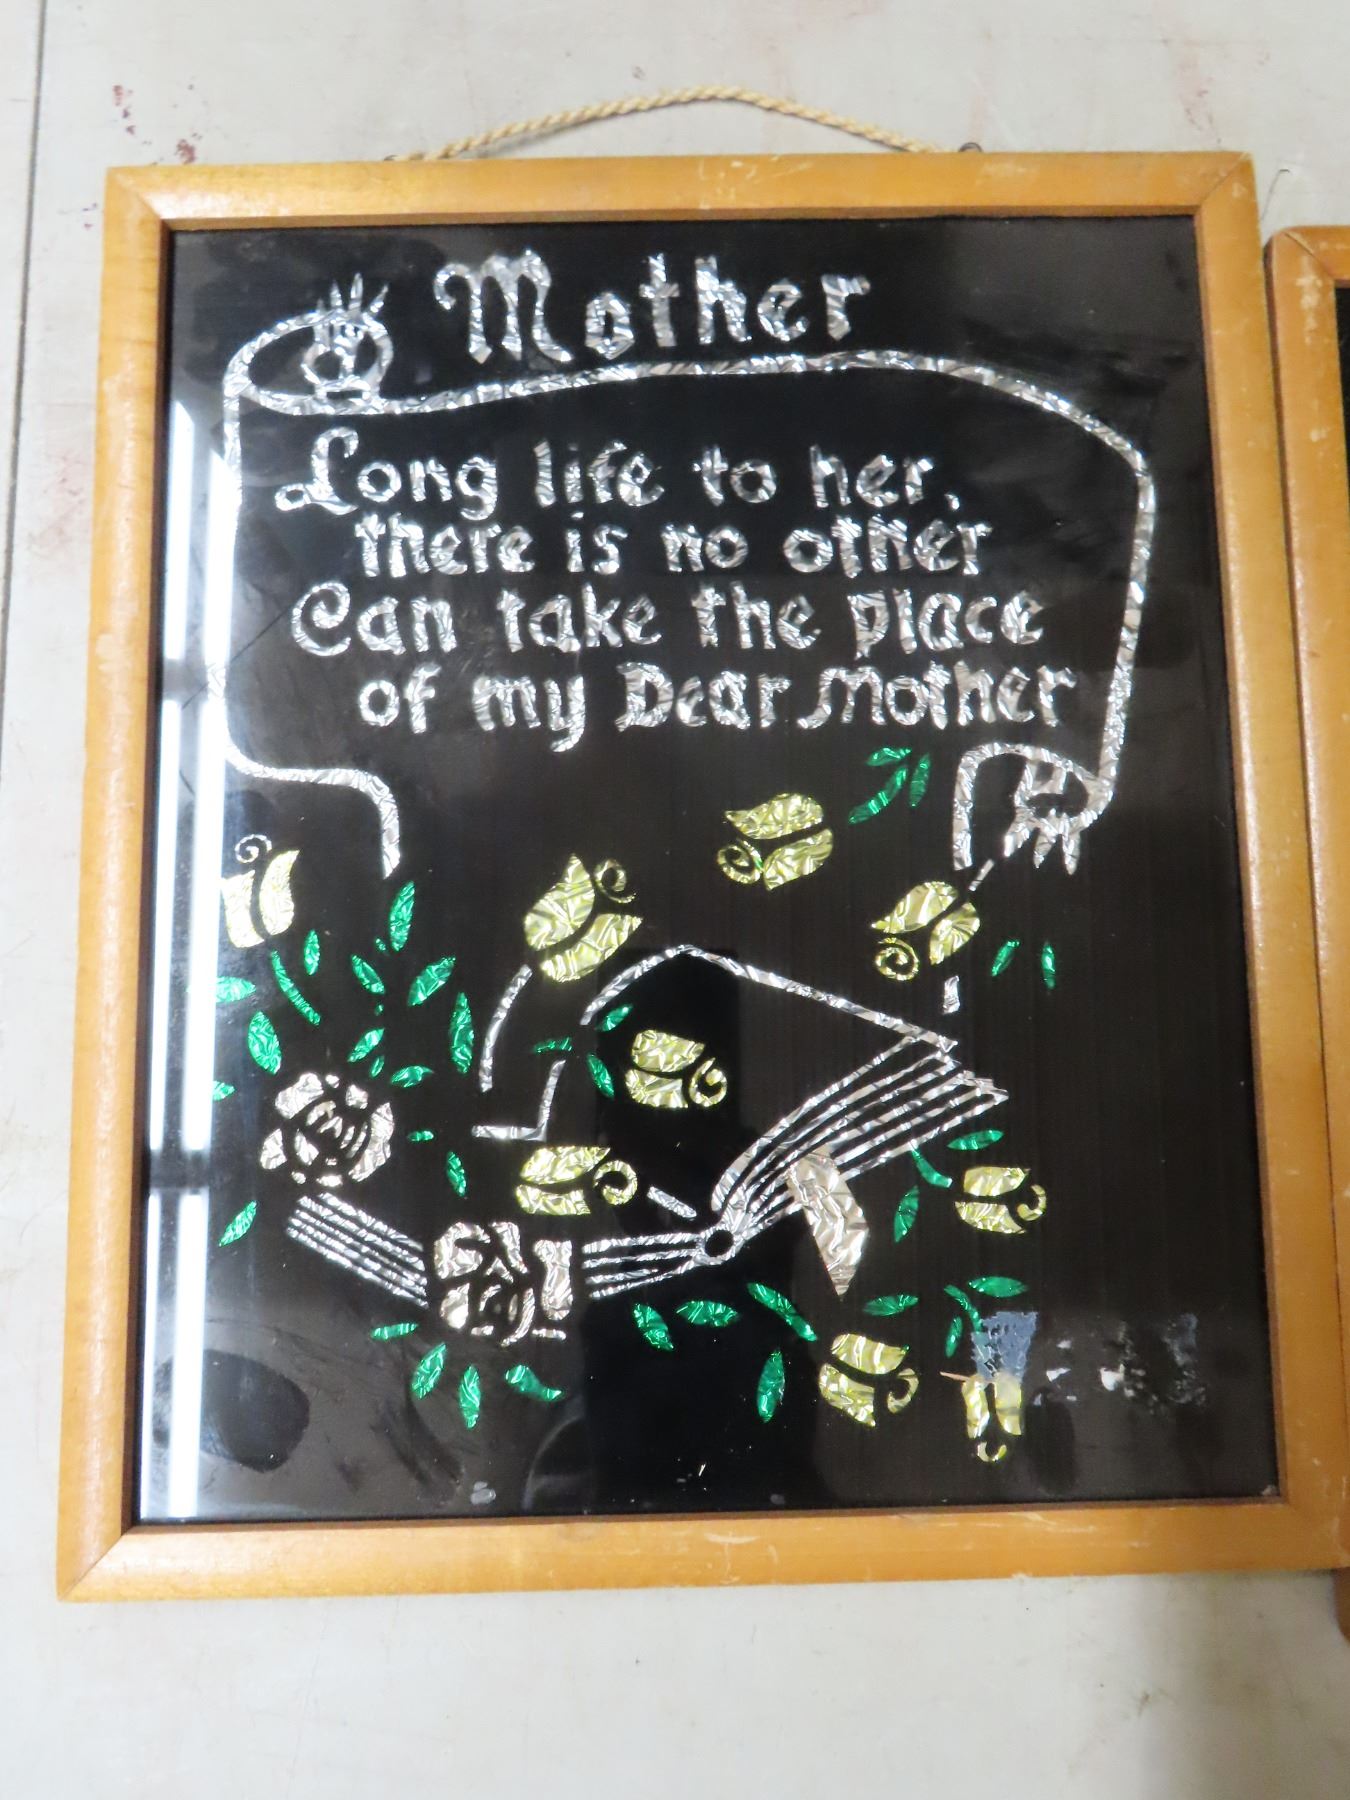 Mother
Long life to her,
there is no other
Can take the place
of my Dear Mother